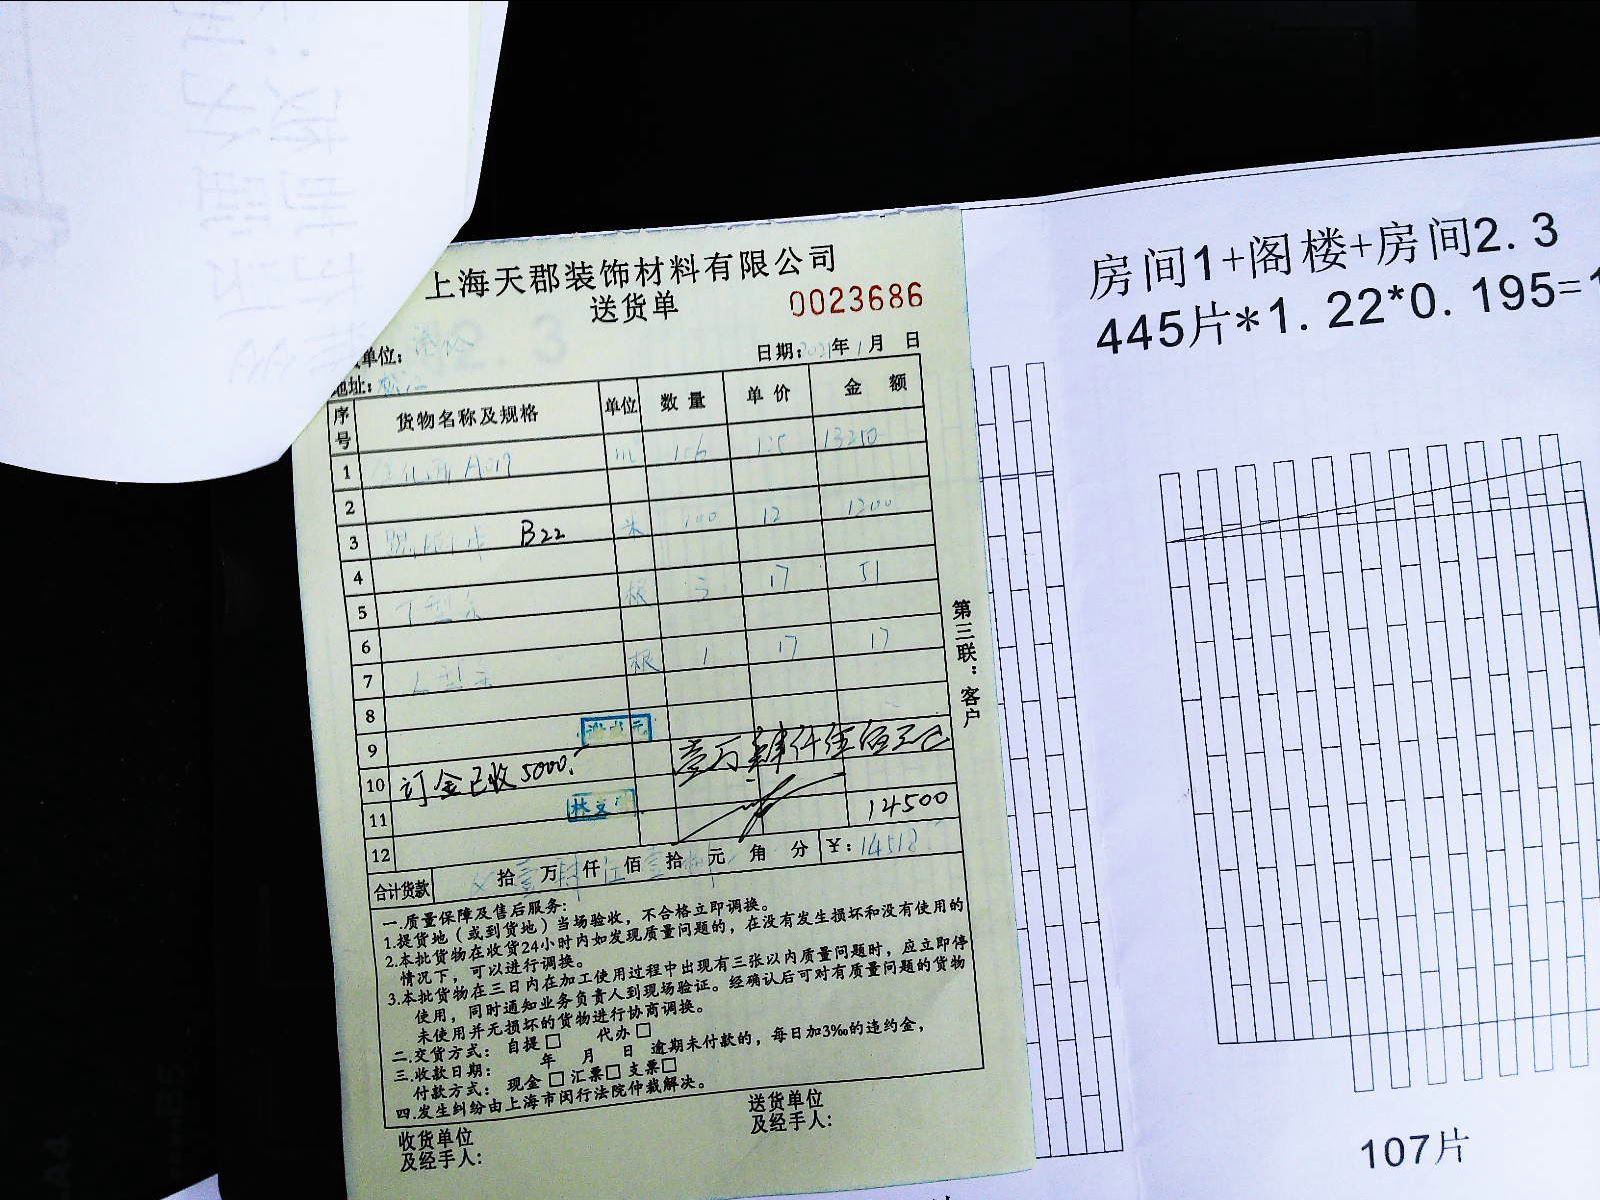 上海天郡装饰材料有限公司
送货单
0023686
单位:
地址:
日期: 2021年1月 日
序号 货物名称及规格 单位 数量 单价 金额
1 A019 106 125 13250
2
3 B22 米 100 12 1200
4
5 丁型条 根 3 17 51
6
7 根 1 17 17
8
9
10 订金已收5000. 壹万肆仟伍佰元正
11 14500
12
合计货款 拾壹万肆仟伍佰壹拾 元 角 分 ¥:14518
第三联:客户
一.质量保障及售后服务:
1.提货地(或到货地)当场验收,不合格立即调换。
2.本批货物在收货24小时内如发现质量问题的,在没有发生损坏和没有使用的
情况下,可以进行调换。
3.本批货物在三日内在加工使用过程中出现有三张以内质量问题时,应立即停
使用,同时通知业务负责人到现场验证。经确认后可对有质量问题的货物
未使用并无损坏的货物进行协商调换。
二.交货方式: 自提□ 代办□
三.收款日期: 年 月 日 逾期未付款的,每日加3‰的违约金,
付款方式: 现金□汇票□支票□
四.发生纠纷由上海市闵行法院仲裁解决。
收货单位
及经手人:
送货单位
及经手人:
房间1+阁楼+房间2.3
445片*1.22*0.195=1
107片